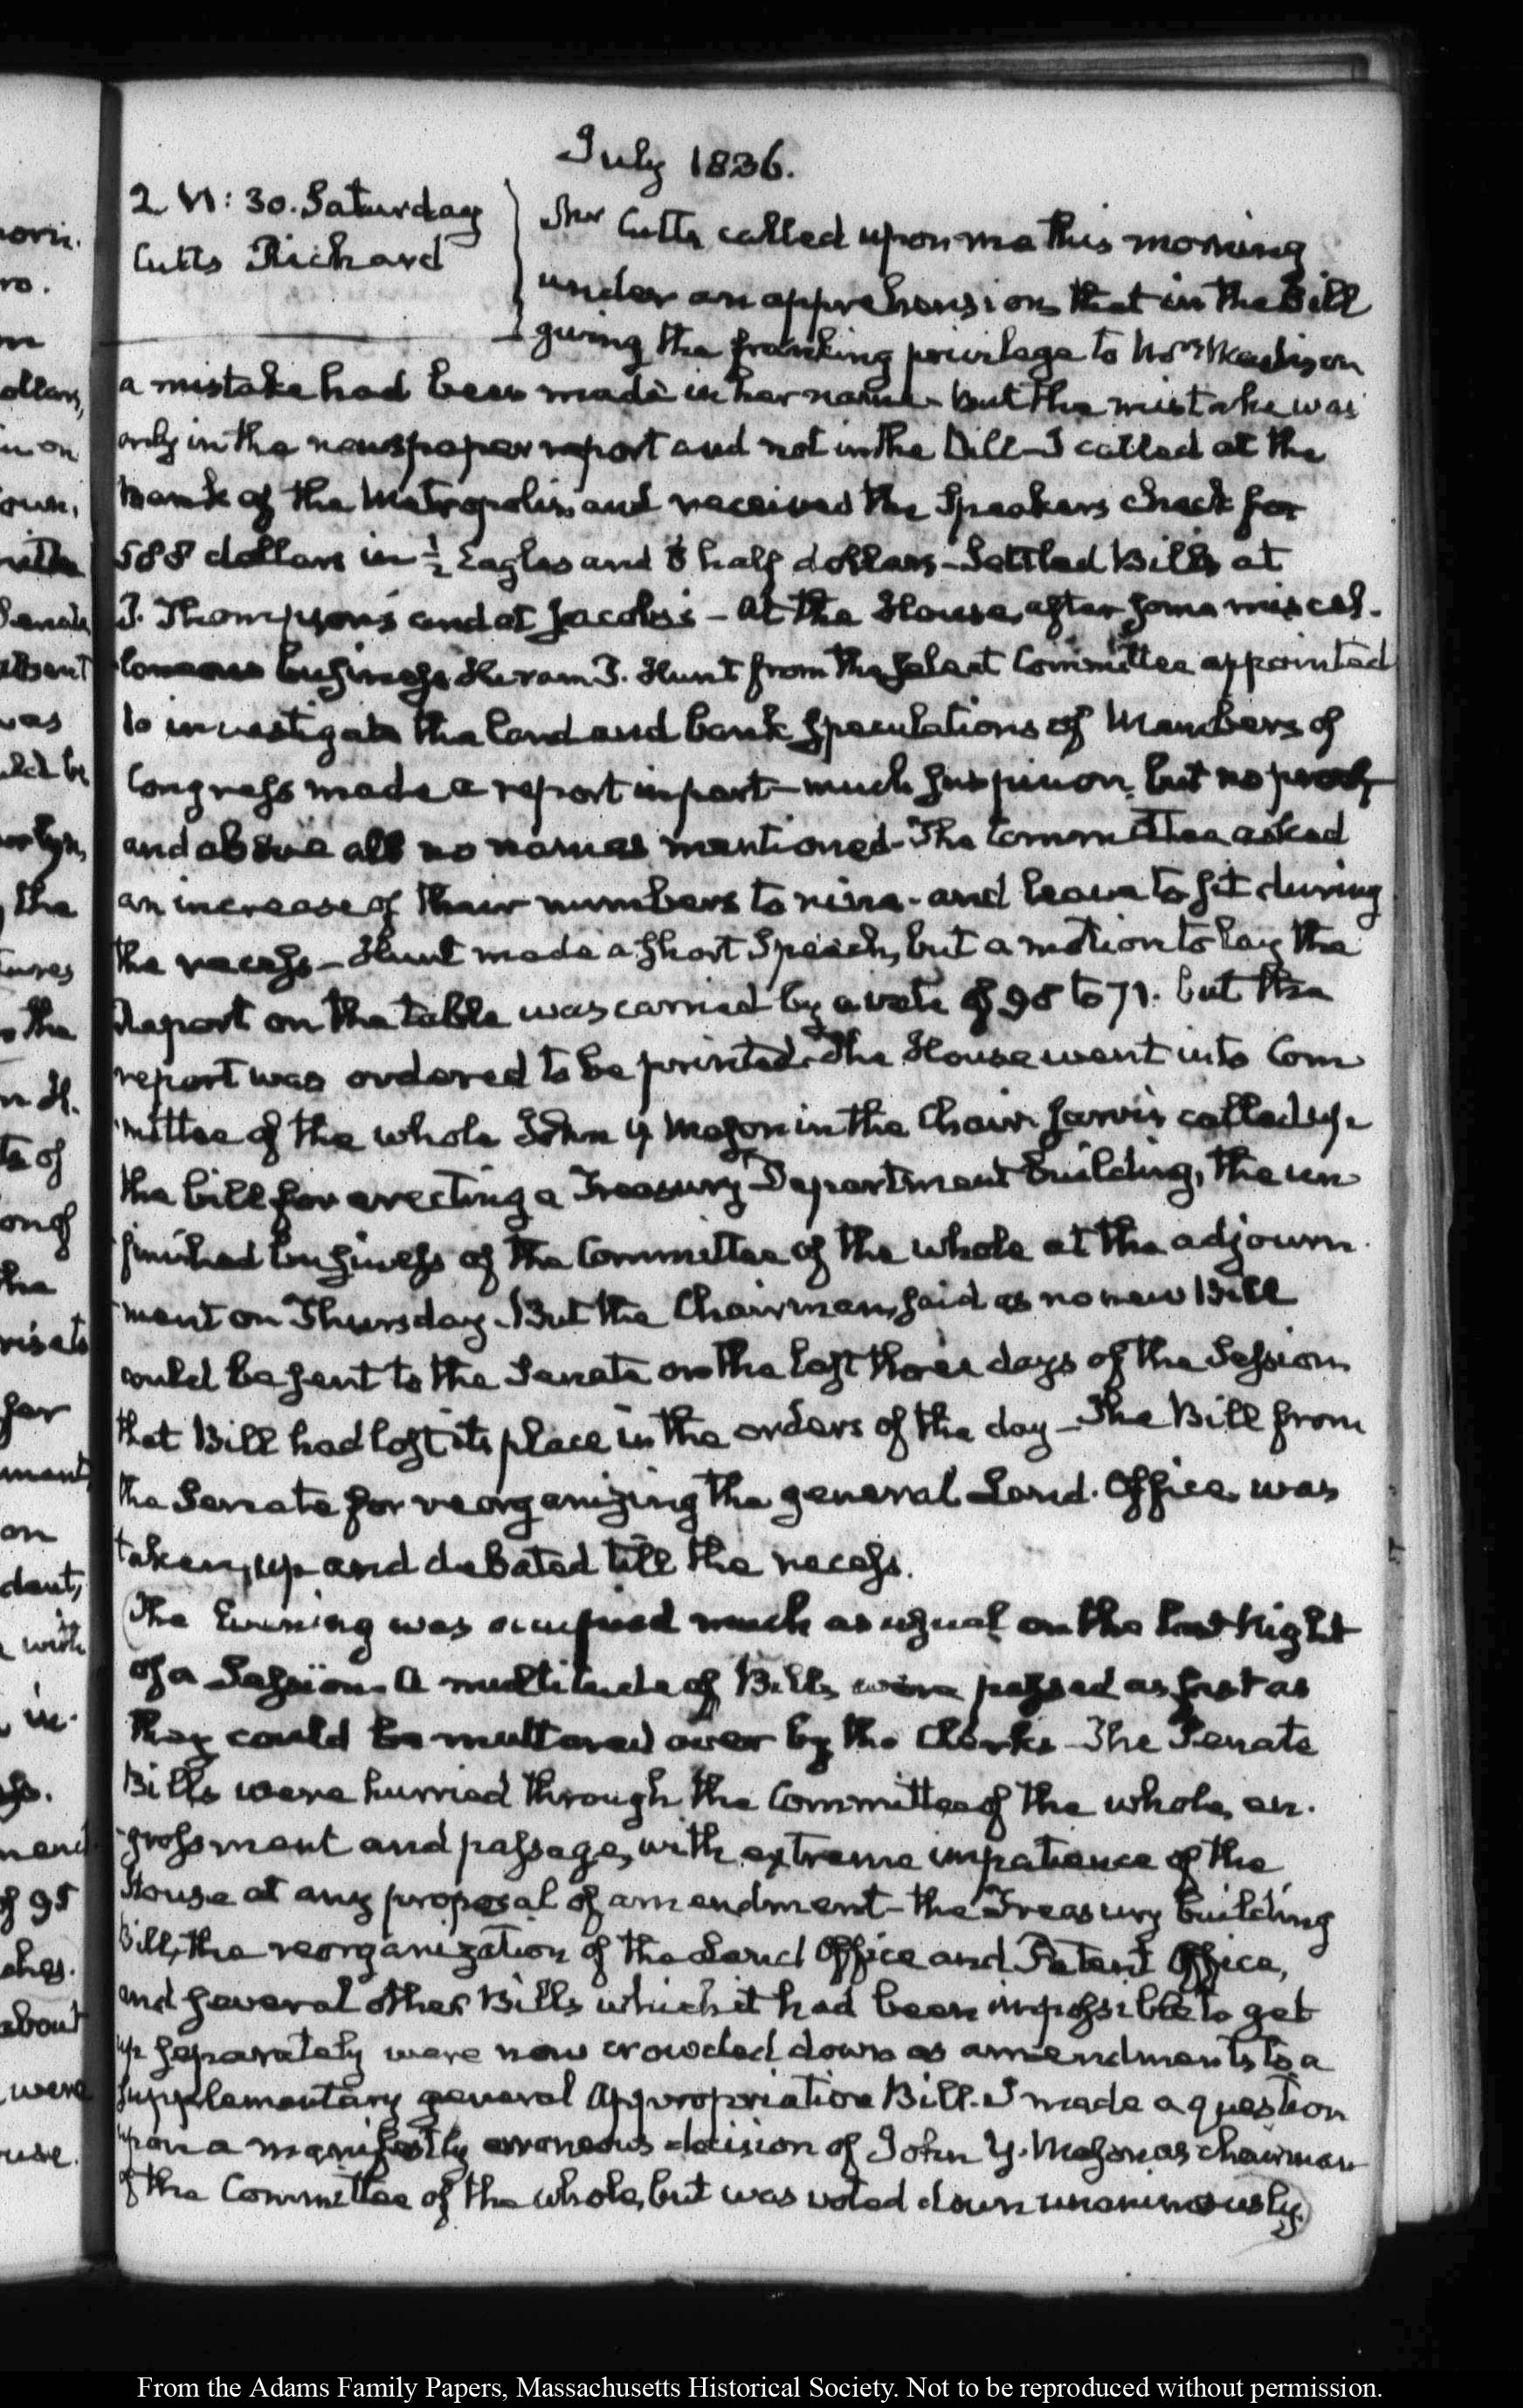 July 1836.
2 VI: 30. Saturday
Cutts Richard
Mr Cutts called upon me this morning
under an apprehension that in the Bill
giving the franking privilege to Mrs Madison
a mistake had been made in her name. But the mistake was
only in the newspaper report and not in the Bill – I called at the
Bank of the Metropolis and received the Speakers check for
588 dollars in ½ Eagles and 6 half dollars – Settled Bills at
J. Thompson's and at Jacobs's – At the House, after some miscel-
laneous business Hiram P. Hunt from the select Committee appointed
to investigate the land and bank speculations of Members of
Congress made a report in part – much suspicion, but no proof,
and above all no names mentioned – The Committee asked
an increase of their numbers to nine – and leave to sit during
the recess – Hunt made a short Speech, but a motion to lay the
Report on the table was carried by a vote of 98 to 71. but the
report was ordered to be printed. The House went into Com
mittee of the whole John Y. Mason in the Chair. Jarvis called up
the bill for erecting a Treasury Department building, the un
finished business of the Committee of the whole at the adjourn-
ment on Thursday. But the Chairman, said as no new Bill
could be sent to the Senate on the last three days of the Session
that Bill had lost its place in the orders of the day – The Bill from
the Senate for reorganizing the general Land Office was
taken up and debated till the recess.
The Evening was occupied much as usual on the last Night
of a Session. A multitude of Bills were passed as fast as
they could be muttered over by the Clerks – The Senate
Bills were hurried through the Committee of the whole, en-
grossment and passage, with extreme impatience of the
House at any proposal of amendment – the Treasury building
bill, the reorganization of the Land Office and Patent Office,
and several other Bills which it had been impossible to get
up separately were now crowded down as amendments to a
supplementary general Appropriation Bill. I made a question
upon a manifestly erroneous decision of John Y. Mason as chairman
of the Committee of the whole, but was voted down unanimously.
From the Adams Family Papers, Massachusetts Historical Society. Not to be reproduced without permission.